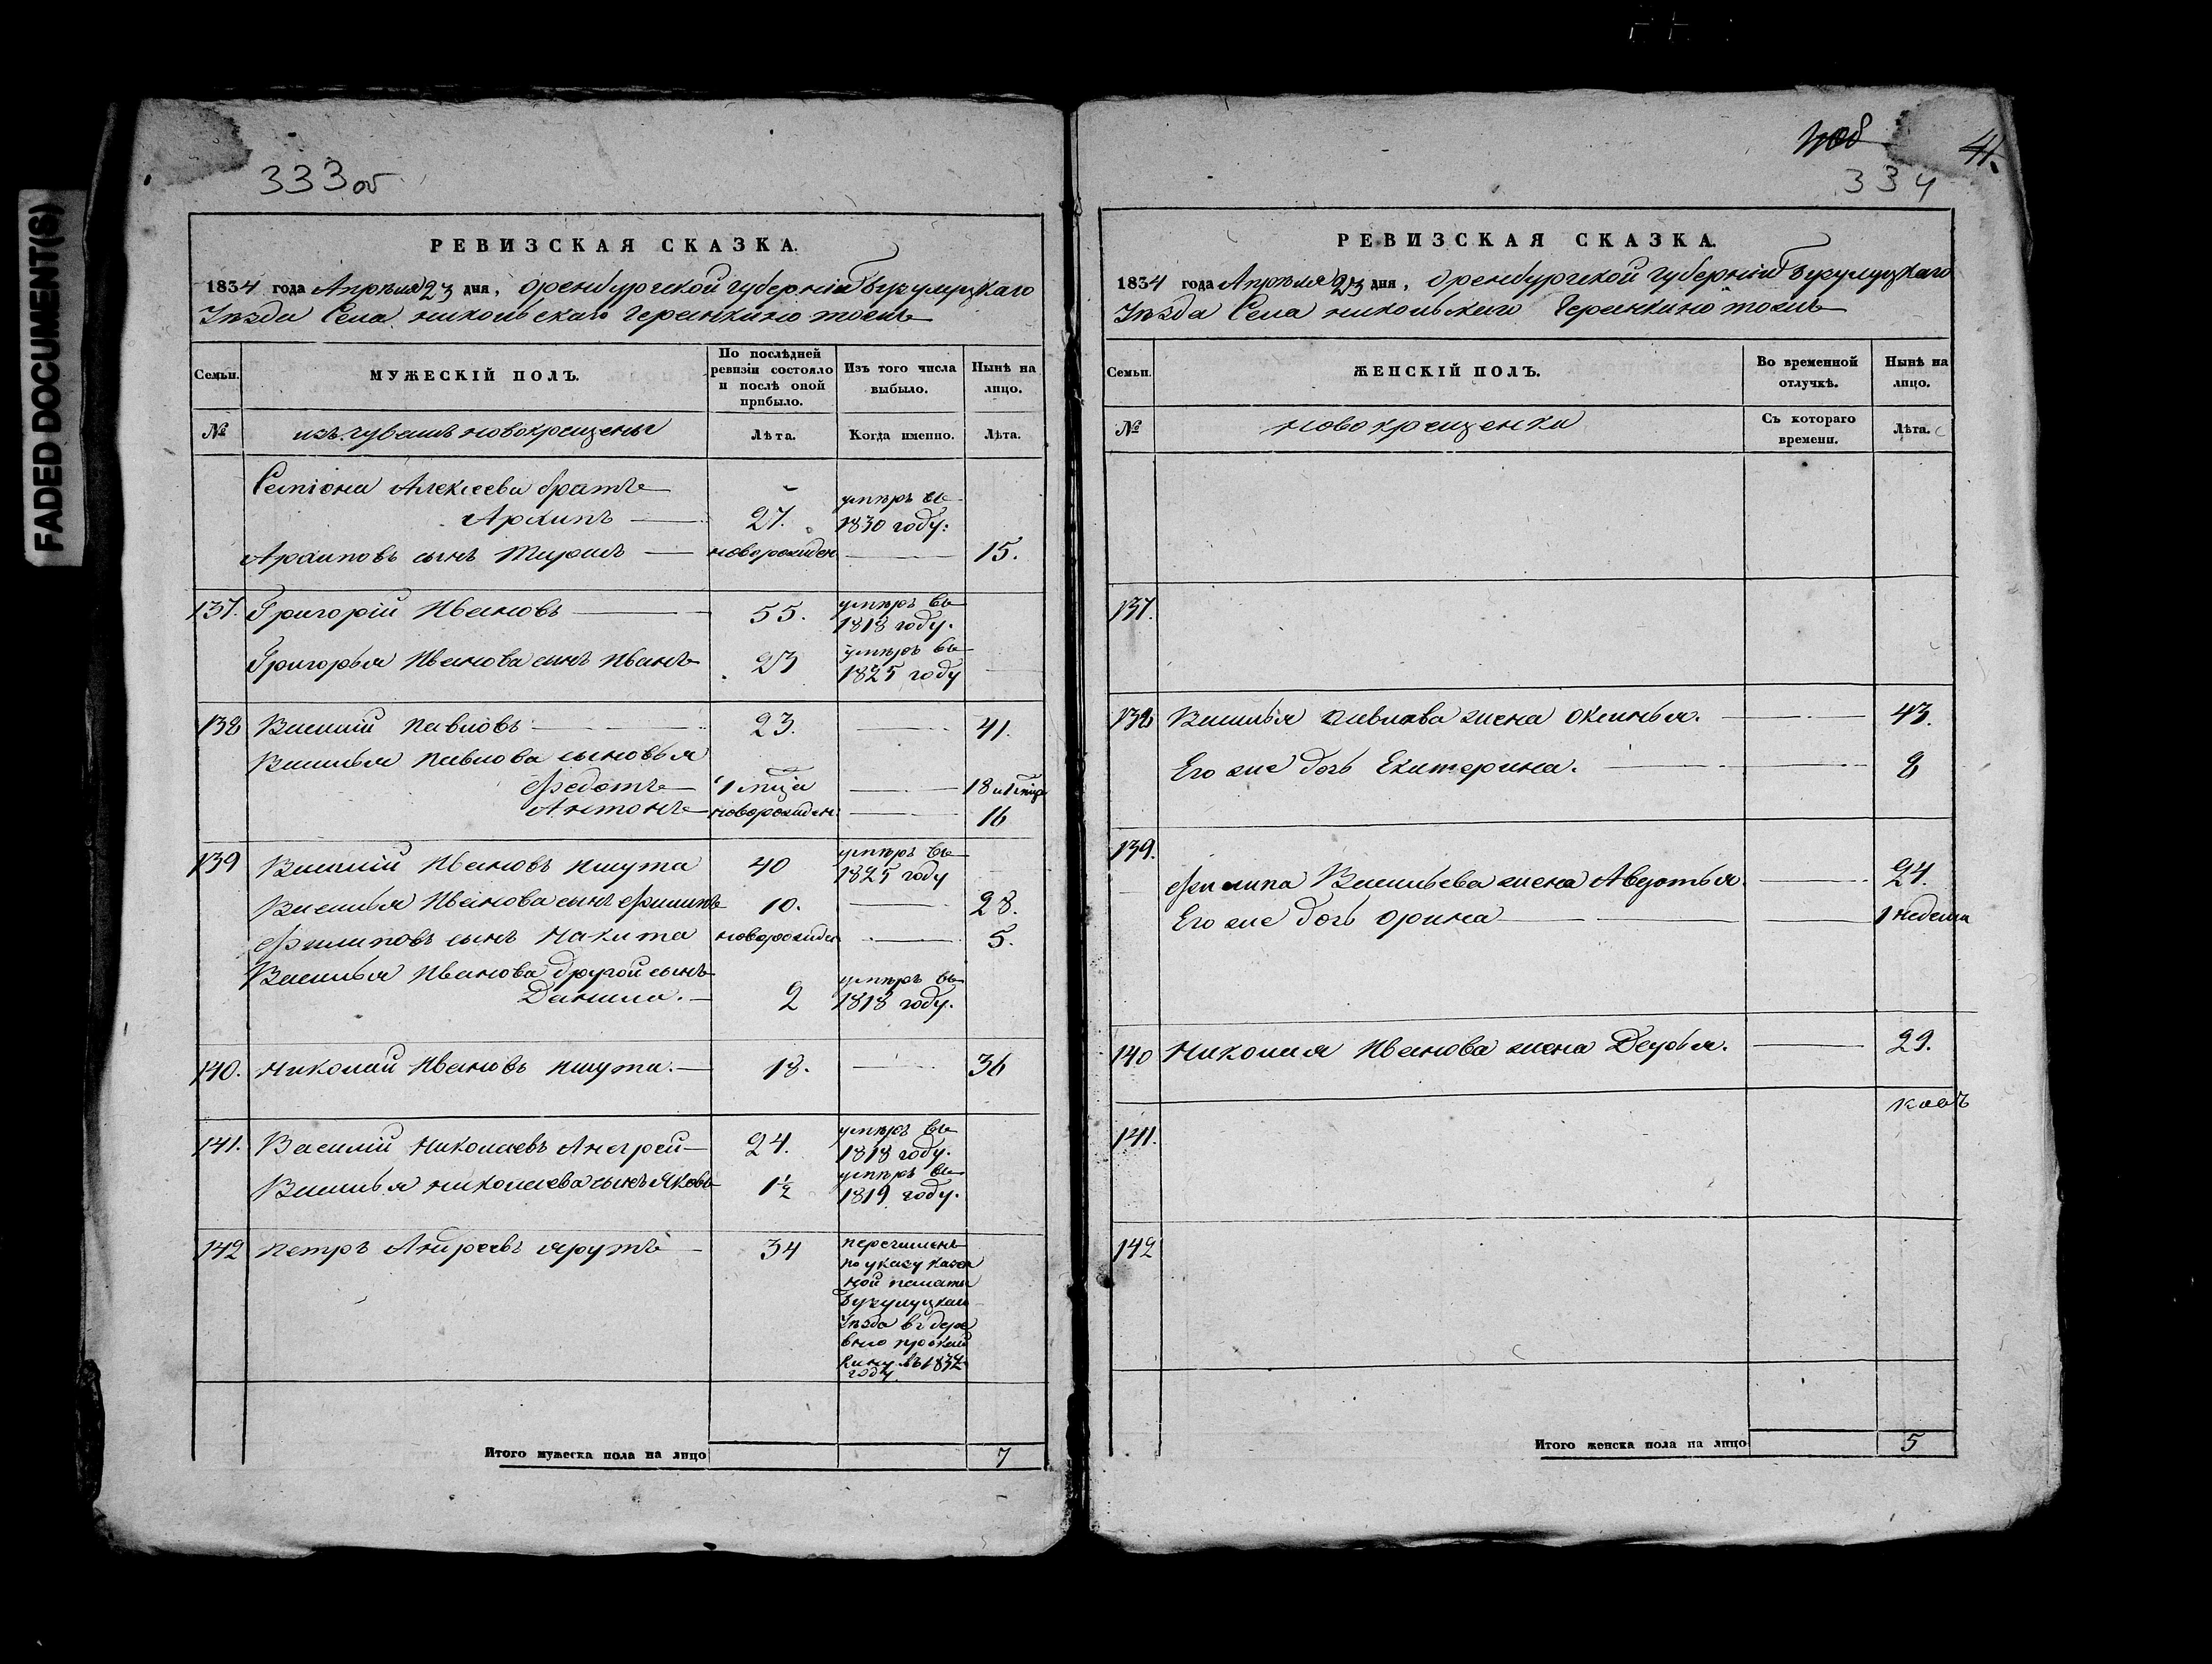 FADED DOCUMENT(S)
333 об
РЕВИЗСКАЯ СКАЗКА.
1834 года Апрѣля 23 дня, Оренбургской губерніи Бугулуцкаго
Уѣзда Села Никольскаго Черинкино тожъ
Семьи.
МУЖЕСКІЙ ПОЛЪ.
По послѣдней ревизіи состояло и послѣ оной прибыло.
Изъ того числа выбыло.
Нынѣ на лицо.
№
изъ чувашъ новокрещены
Лѣта.
Когда именно.
Лѣта.
Семіона Алексеева братъ
Архипъ 27. умѣръ въ 1830 году:
Архиповъ сынъ новорожден 15.
137. Григорій Ивановъ 55. умѣръ въ 1818 году.
Григорья Иванова сынъ Иванъ 23 умѣръ въ 1825 году
138 Василій Павловъ 23. 41.
Василья Павлова сыновья
Федотъ 1 мца 18 и 1 мца
Антонъ новорожден. 16
139 Василій Ивановъ Пшута 40 умѣръ въ 1825 году
Василья Иванова сынъ Филипъ 10. 28.
Филиповъ сынъ Никита новорожден 5.
Василья Иванова другой сынъ
Данила. 2 умѣръ въ 1818 году.
140. Николай Ивановъ Пшута. 18. 36
141. Василій Николаевъ Андрей 24. умѣръ въ 1818 году.
Василья Николаева сынъ Яковъ 1½ умѣръ въ 1819 году.
142 Петръ Андреевъ 34 перечисленъ
по указу казен
ной палаты
Бугулуцкаго
Уѣзда въ дере
вню
въ 1832
году
Итого мужеска пола на лицо 7
41.
334
РЕВИЗСКАЯ СКАЗКА.
1834 года Апрѣля 23 дня, Оренбургской губерніи Бугулуцкаго
Уѣзда Села Никольскаго Черинкино тожъ
Семьи.
ЖЕНСКІЙ ПОЛЪ.
Во временной отлучкѣ.
Нынѣ на лицо.
№
новокрещенки
Съ котораго времени.
Лѣта.
137.
138 Василья Павлова жена Оксинья. 43.
Его же дочь Екатерина. 8
139.
Филипа Васильева жена Авдотья. 24.
Его же дочь Орина 1 неделя
140 Николая Иванова жена Дарья. 29.
141.
142
Итого женска пола на лицо 5